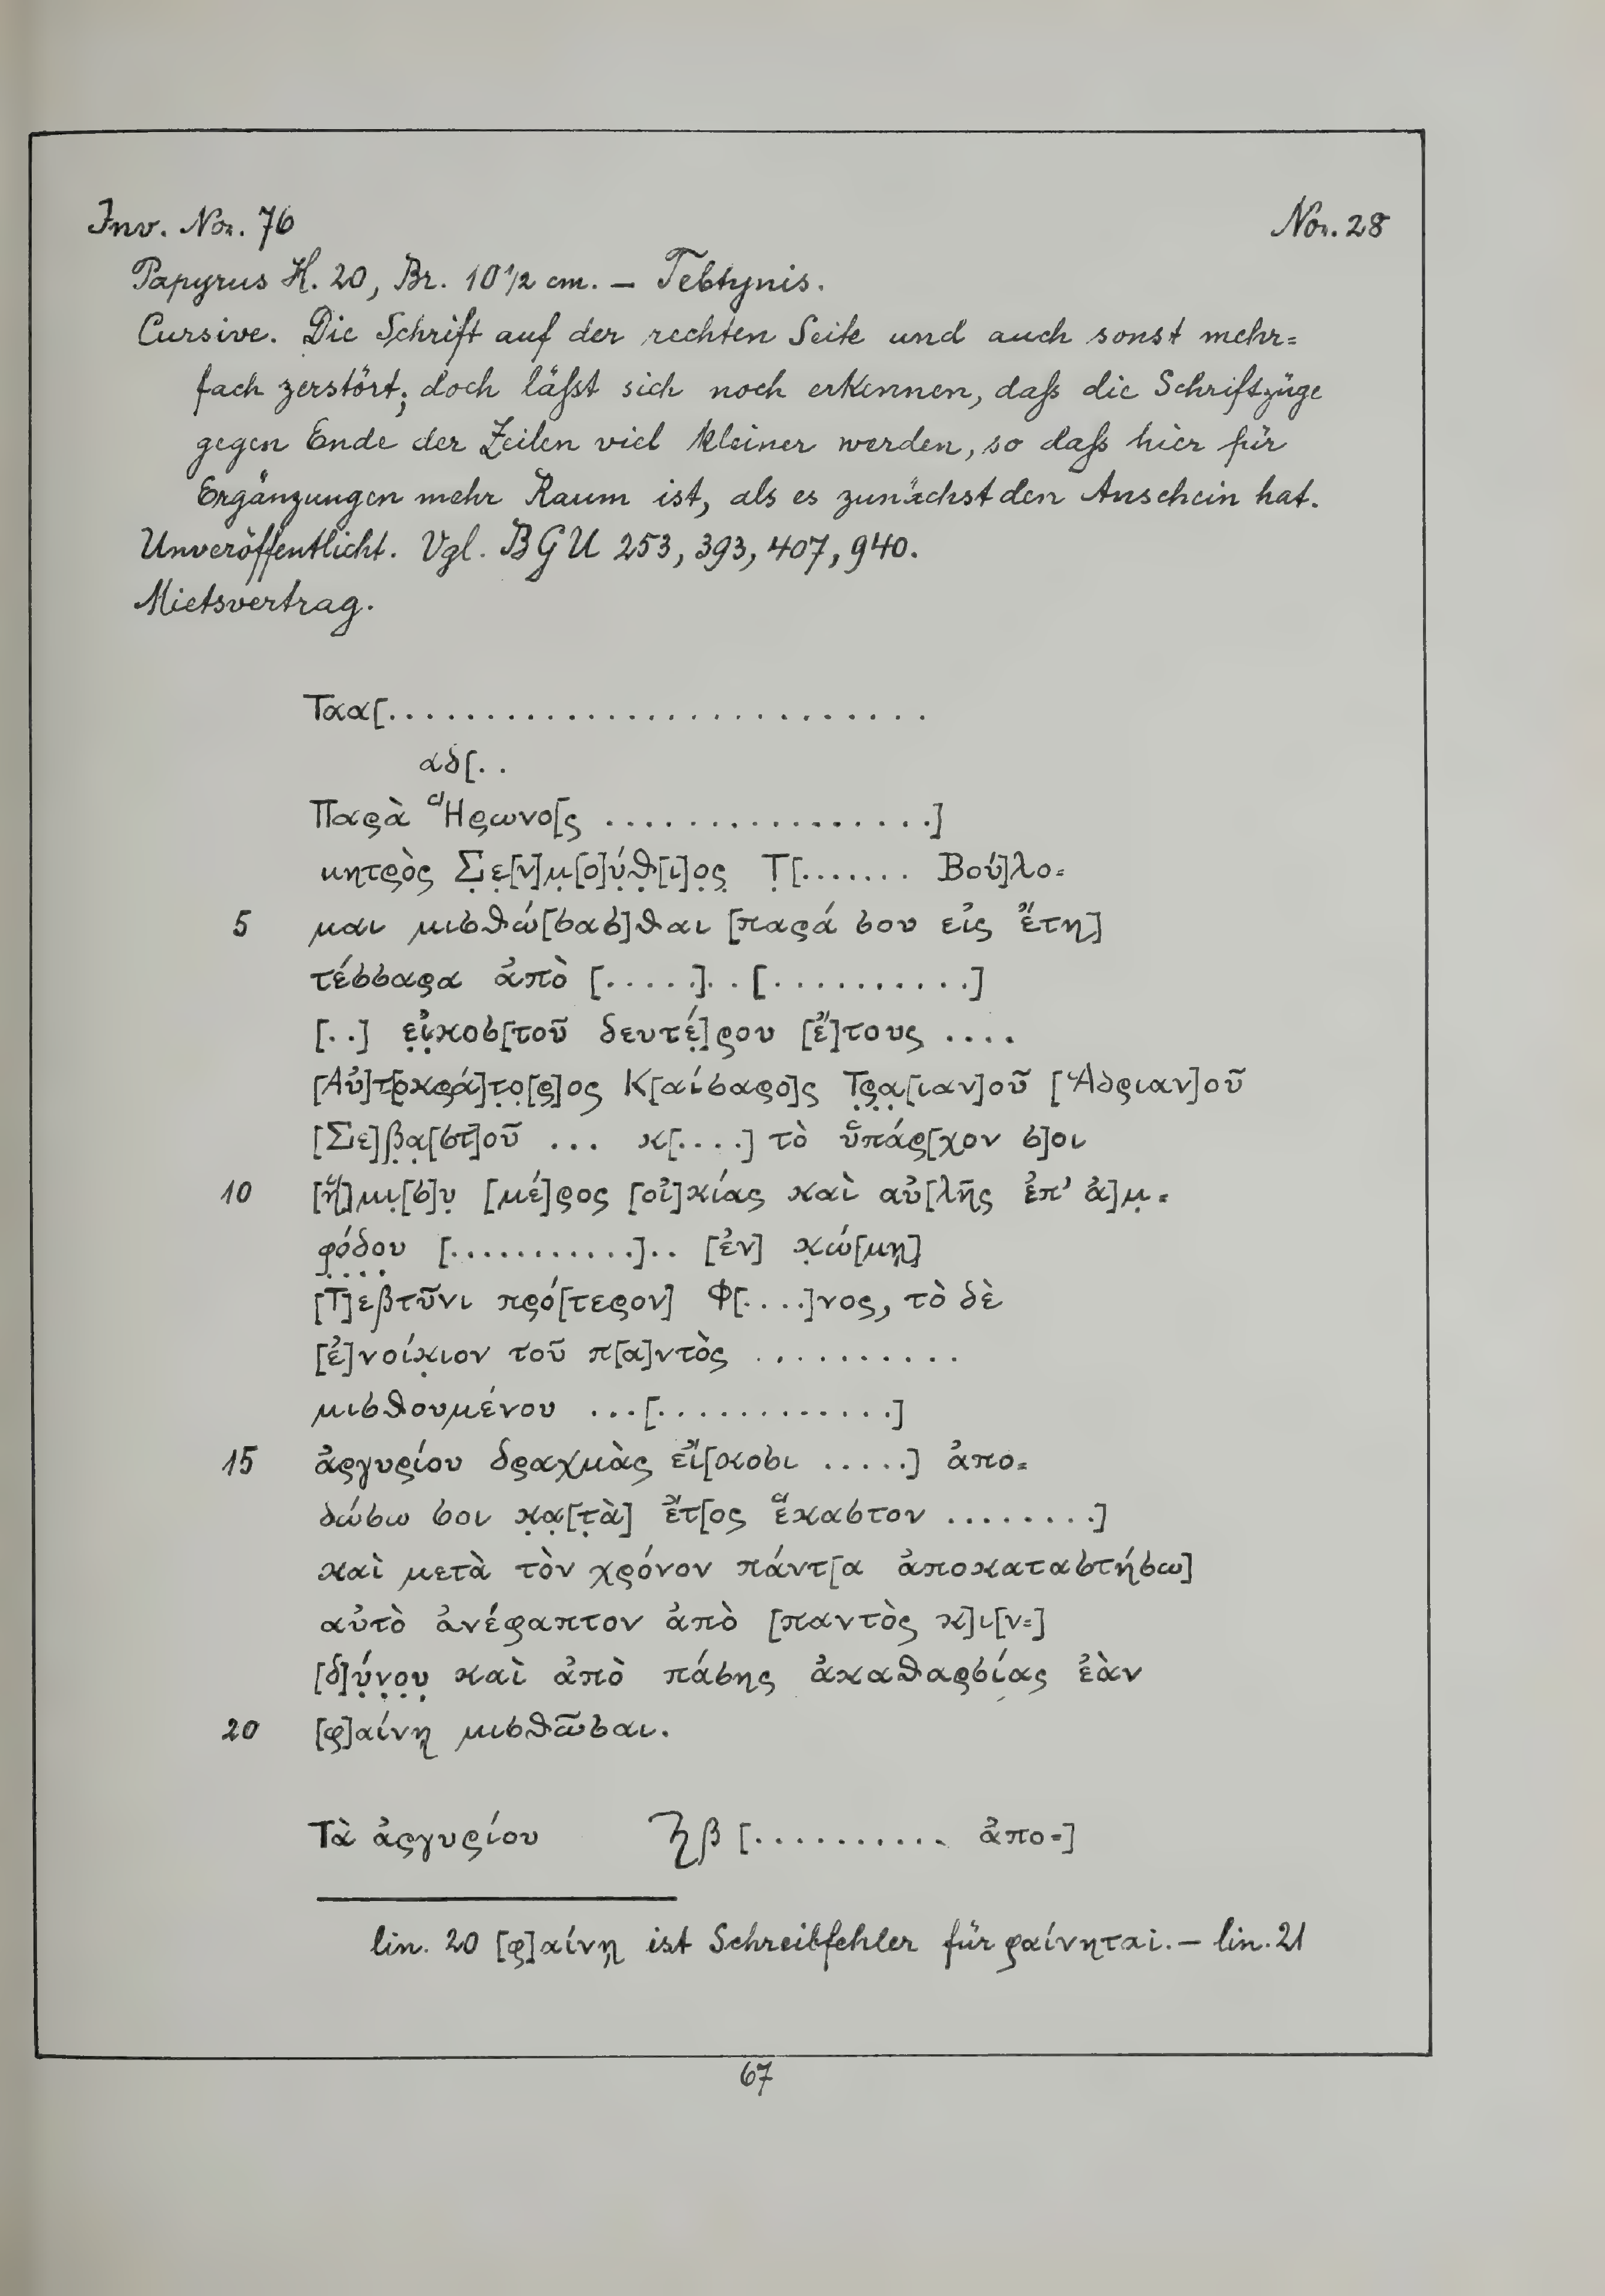 Inv. Nor. 76
Nor. 28
Papyrus H. 20, Br. 10 1/2 cm. – Tebtynis.
Cursive. Die Schrift auf der rechten Seite und auch sonst mehr=
fach zerstört; doch läſst sich noch erkennen, daſs die Schriftzüge
gegen Ende der Zeilen viel kleiner werden, so daſs hier für
Ergänzungen mehr Raum ist, als es zunächst den Anschein hat.
Unveröffentlicht. Vgl. BGU 253, 393, 407, 940.
Mietsvertrag.
Ταα[. . . . . . . . . . . . . . . . . . . . . . . . . . .
αδ[. .
Παρὰ Ἥρωνο[ς . . . . . . . . . . . . . . . . .]
μητρὸς Σ̣ε̣[ν]μ̣[ο]ύ̣θ̣[ι]ο̣ς̣ Τ̣[. . . . . . . Βού]λο=
5 μαι μισθώ[σασ]θαι [παρά σου εἰς ἔτη]
τέσσαρα ἀπὸ [. . . . .]. . [. . . . . . . . . . .]
[. .] ε̣ἰ̣κοσ[τοῦ δευτέ]ρου [ἔ]τους . . . .
[Αὐ]τ[οκρά]τ̣ο̣[ρ]ος Κ[αίσαρο]ς Τ̣ρ̣α̣[ιαν]οῦ [Ἁδριαν]οῦ
[Σε]β̣α̣[στ]οῦ . . . κ[. . . .] τὸ ὑπάρ[χον σ]οι
10 [ἥ]μι̣[σ]υ̣ [μέ]ρος [οἰ]κίας καὶ αὐ[λῆς ἐπ’ ἀ]μ̣=
φ̣ό̣δ̣ο̣υ [. . . . . . . . . . . .]. . [ἐν] κ̣ώ[μῃ]
[Τ]εβτῦνι πρό[τερον] Φ[. . . .]νος, τὸ δὲ
[ἐ]νοίκ̣ιον τοῦ π[α]ντὸς . . . . . . . . . .
μισθουμένου . . . [. . . . . . . . . . . . .]
15 ἀργυρίου δραχμὰς εἴ[κοσι . . . . .] ἀπο=
δώσω σοι κ̣α̣[τ̣ὰ] ἔτ[ος ἕκαστον . . . . . . . .]
καὶ μετὰ τὸν χρόνον πάντ[α ἀποκαταστήσω]
αὐτὸ ἀνέφαπτον ἀπὸ [παντὸς κ]ι[ν=]
[δ]ύ̣ν̣ο̣υ̣ καὶ ἀπὸ πάσης ἀκαθαρσίας ἐὰν
20 [φ]αίνῃ μισθῶσαι.
Τὰ ἀργυρίου ϡβ [. . . . . . . . . . . ἀπο=]
lin. 20 [φ]αίνῃ ist Schreibfehler für φαίνηται. – lin. 21
67